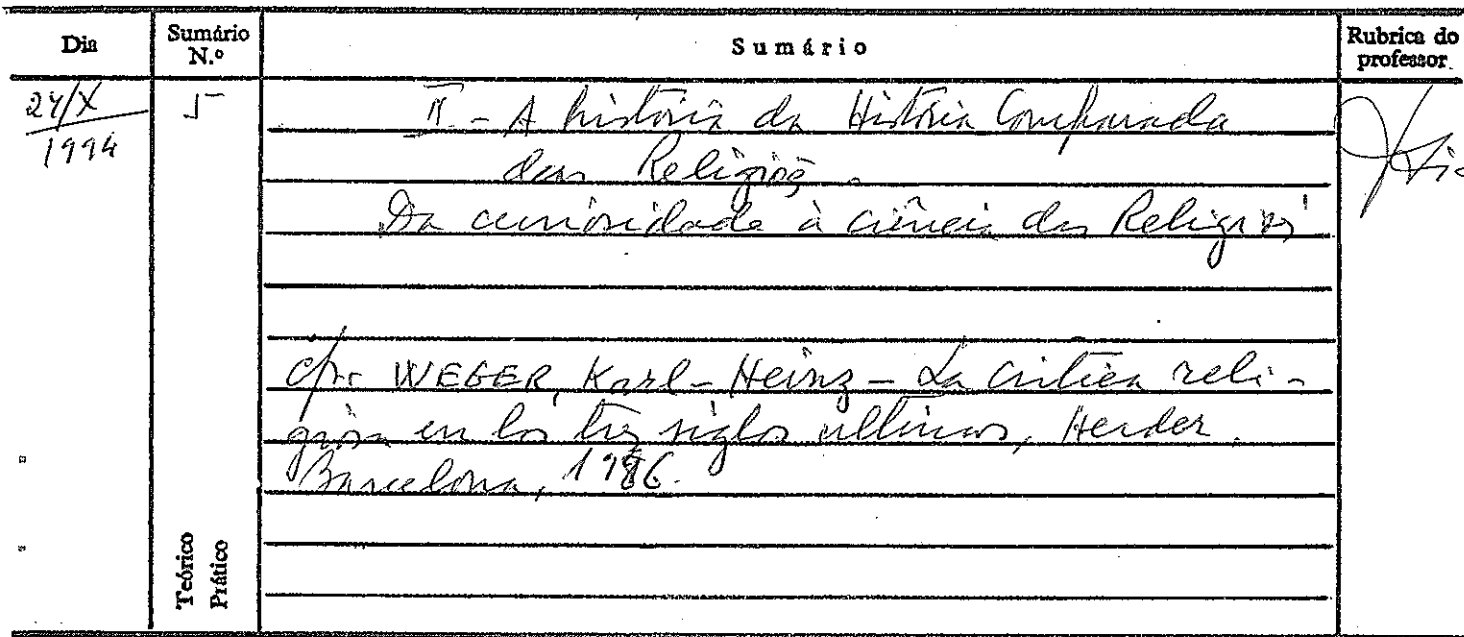 Dia
Sumário N.º
Sumário
Rubrica do professor
24/X
1994
5
II - A história da História Comparada
das Religiões.
Da curiosidade à ciência das Religiões
cfr WEGER, Karl-Heinz - La critica reli-
giosa en los tres siglos ultimos, Herder,
Barcelona, 1986.
Teórico
Prático